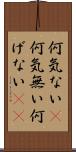 何気ない
何気無い何
げない